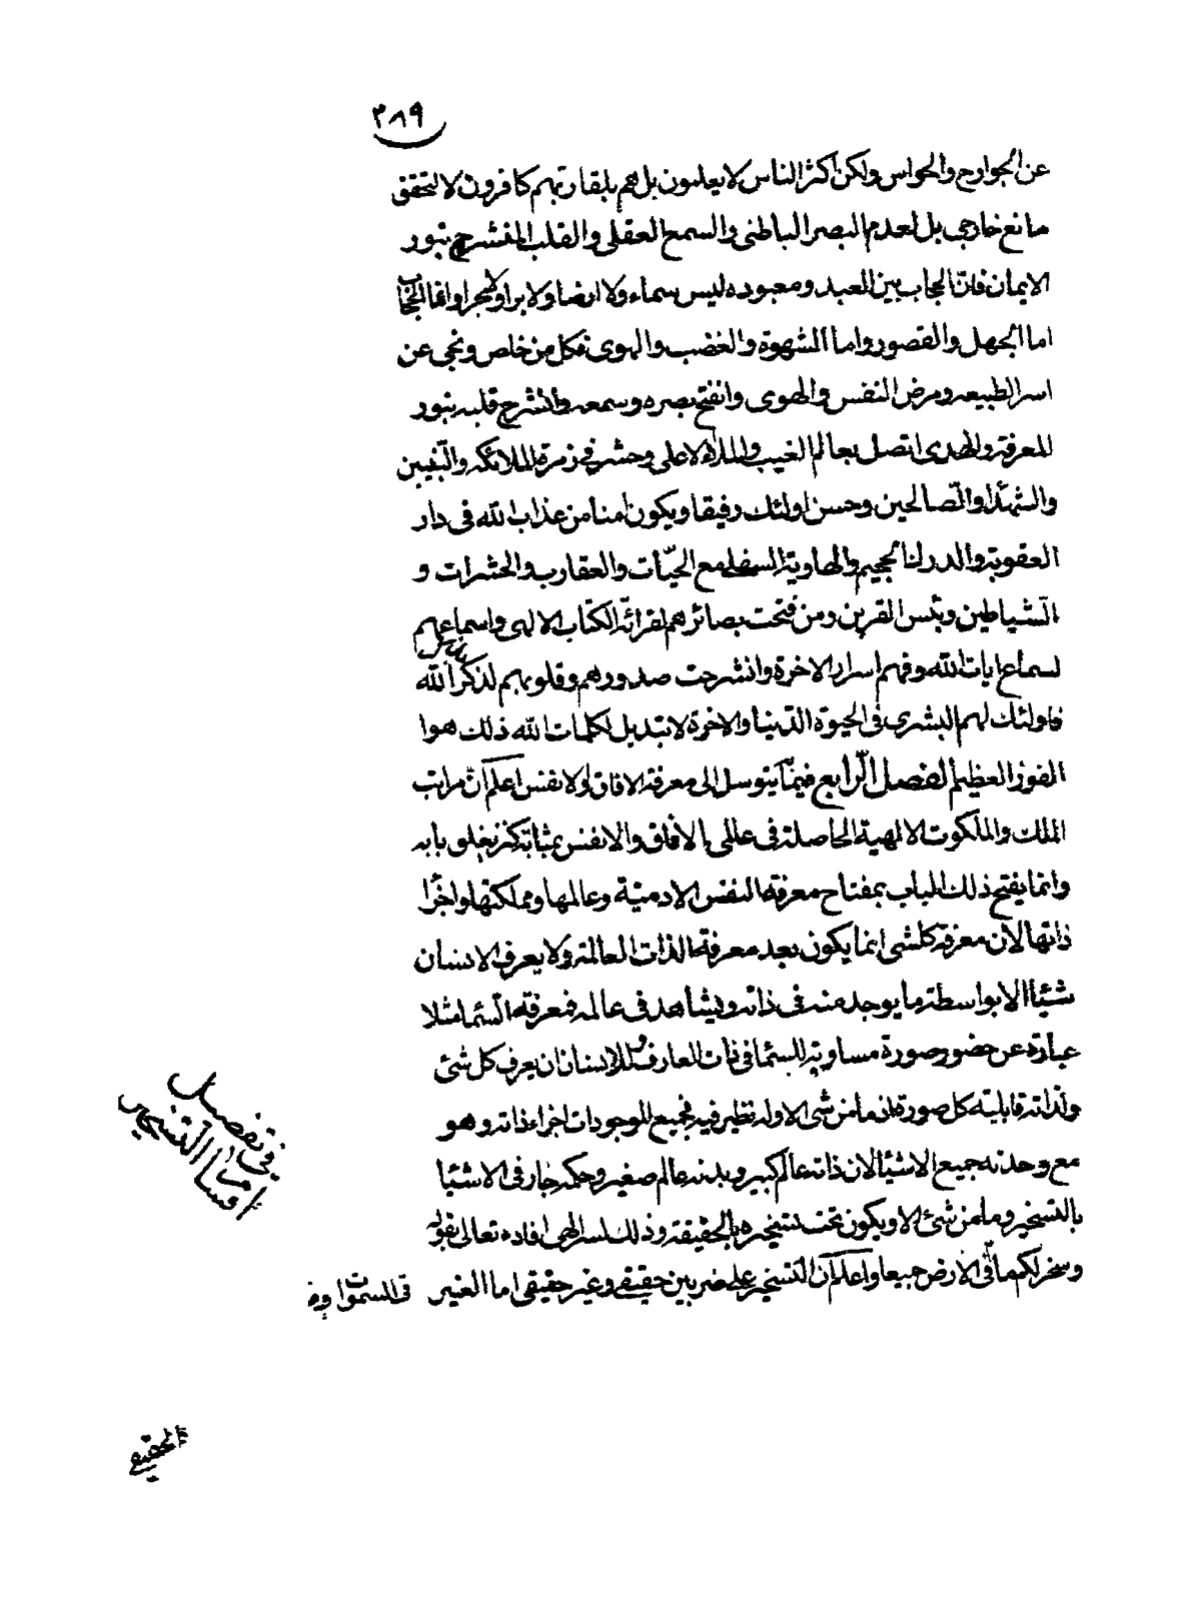 ٣٨٩
عن الجوارح والحواس ولكن اكثر الناس لا يعلمون بل هم بلقاء ربهم كافرون لا لتحقق
مانع خارجى بل لعدم البصر الباطنى والسمع العقلى والقلب المنشرح بنور
الايمان فان الحجاب بين العبد ومعبوده ليس سماء ولا ارضا ولا برا ولا بحرا وانما الحجاب
اما الجهل والقصور واما الشهوة والغضب والهوى فكل من خلص ونجى عن
اسر الطبيعه ومرض النفس والهوى وانفتح بصره وسمعه وانشرح قلبه بنور
المعرفة والهدى اتصل بعالم الغيب والملاء الاعلى وحشر فى زمرة الملائكه والنبيين
والشهدا والصالحين وحسن اولئك رفيقا ويكون امنا من عذاب الله فى دار
العقوبة والدرك الجحيم والهاوية السفلى مع الحيّات والعقارب والحشرات و
الشياطين وبئس القرين ومن فتحت بصائرهم لقرائة الكتاب الالهى واسماعهم
لسماع ايات الله وفهم اسرار الاخرة وانشرحت صدورهم وقلوبهم لذكر الله
فاولئك لهم البشرى فى الحيوة الدنيا والاخرة لا تبديل لكلمات الله ذلك هوا
الفوز العظيم الفصل الرابع فيما يتوسل الى معرفة الافاق والانفس اعلم ان مراتب
الملك والملكوت الالهية الحاصلة فى عالمى الافاق والانفس بمثابة كنز يغلق بابه
وانما يفتح ذلك الباب بمفتاح معرفة النفس الادميّة وعالمها ومملكتها واجزا
ذاتها لان معرفة كلشى انما يكون بعد معرفة الذات العالمة ولا يعرف الانسان
شيئا الا بواسطة ما يوجد منه فى ذاته ويشاهد فى عالمه فمعرفة السما مثلا
عبارة عن حضور صورة مساوية للسما فى ذات العارف وللانسان ان يعرف كل شئ
ولذاته قابلية كل صورة اذ ما من شى الا وله نظير فيه فجميع الموجودات اجزاء ذاته وهو
مع وحدته جميع الاشيا لان ذاته عالم كبير وبدنه عالم صغير وحكمه جار فى الاشيا
بالتسخير وما من شئ الا ويكون تحت تسخيره بالحقيقة وذلك لسر الهى افاده تعالى بقوله
وسخر لكم ما فى الارض جميعا واعلم ان التسخير على ضربين حقيقى وغير حقيقى اما الغير
فى السموات وما
فى تفصيل
اقسام التسخير
الحقيقى